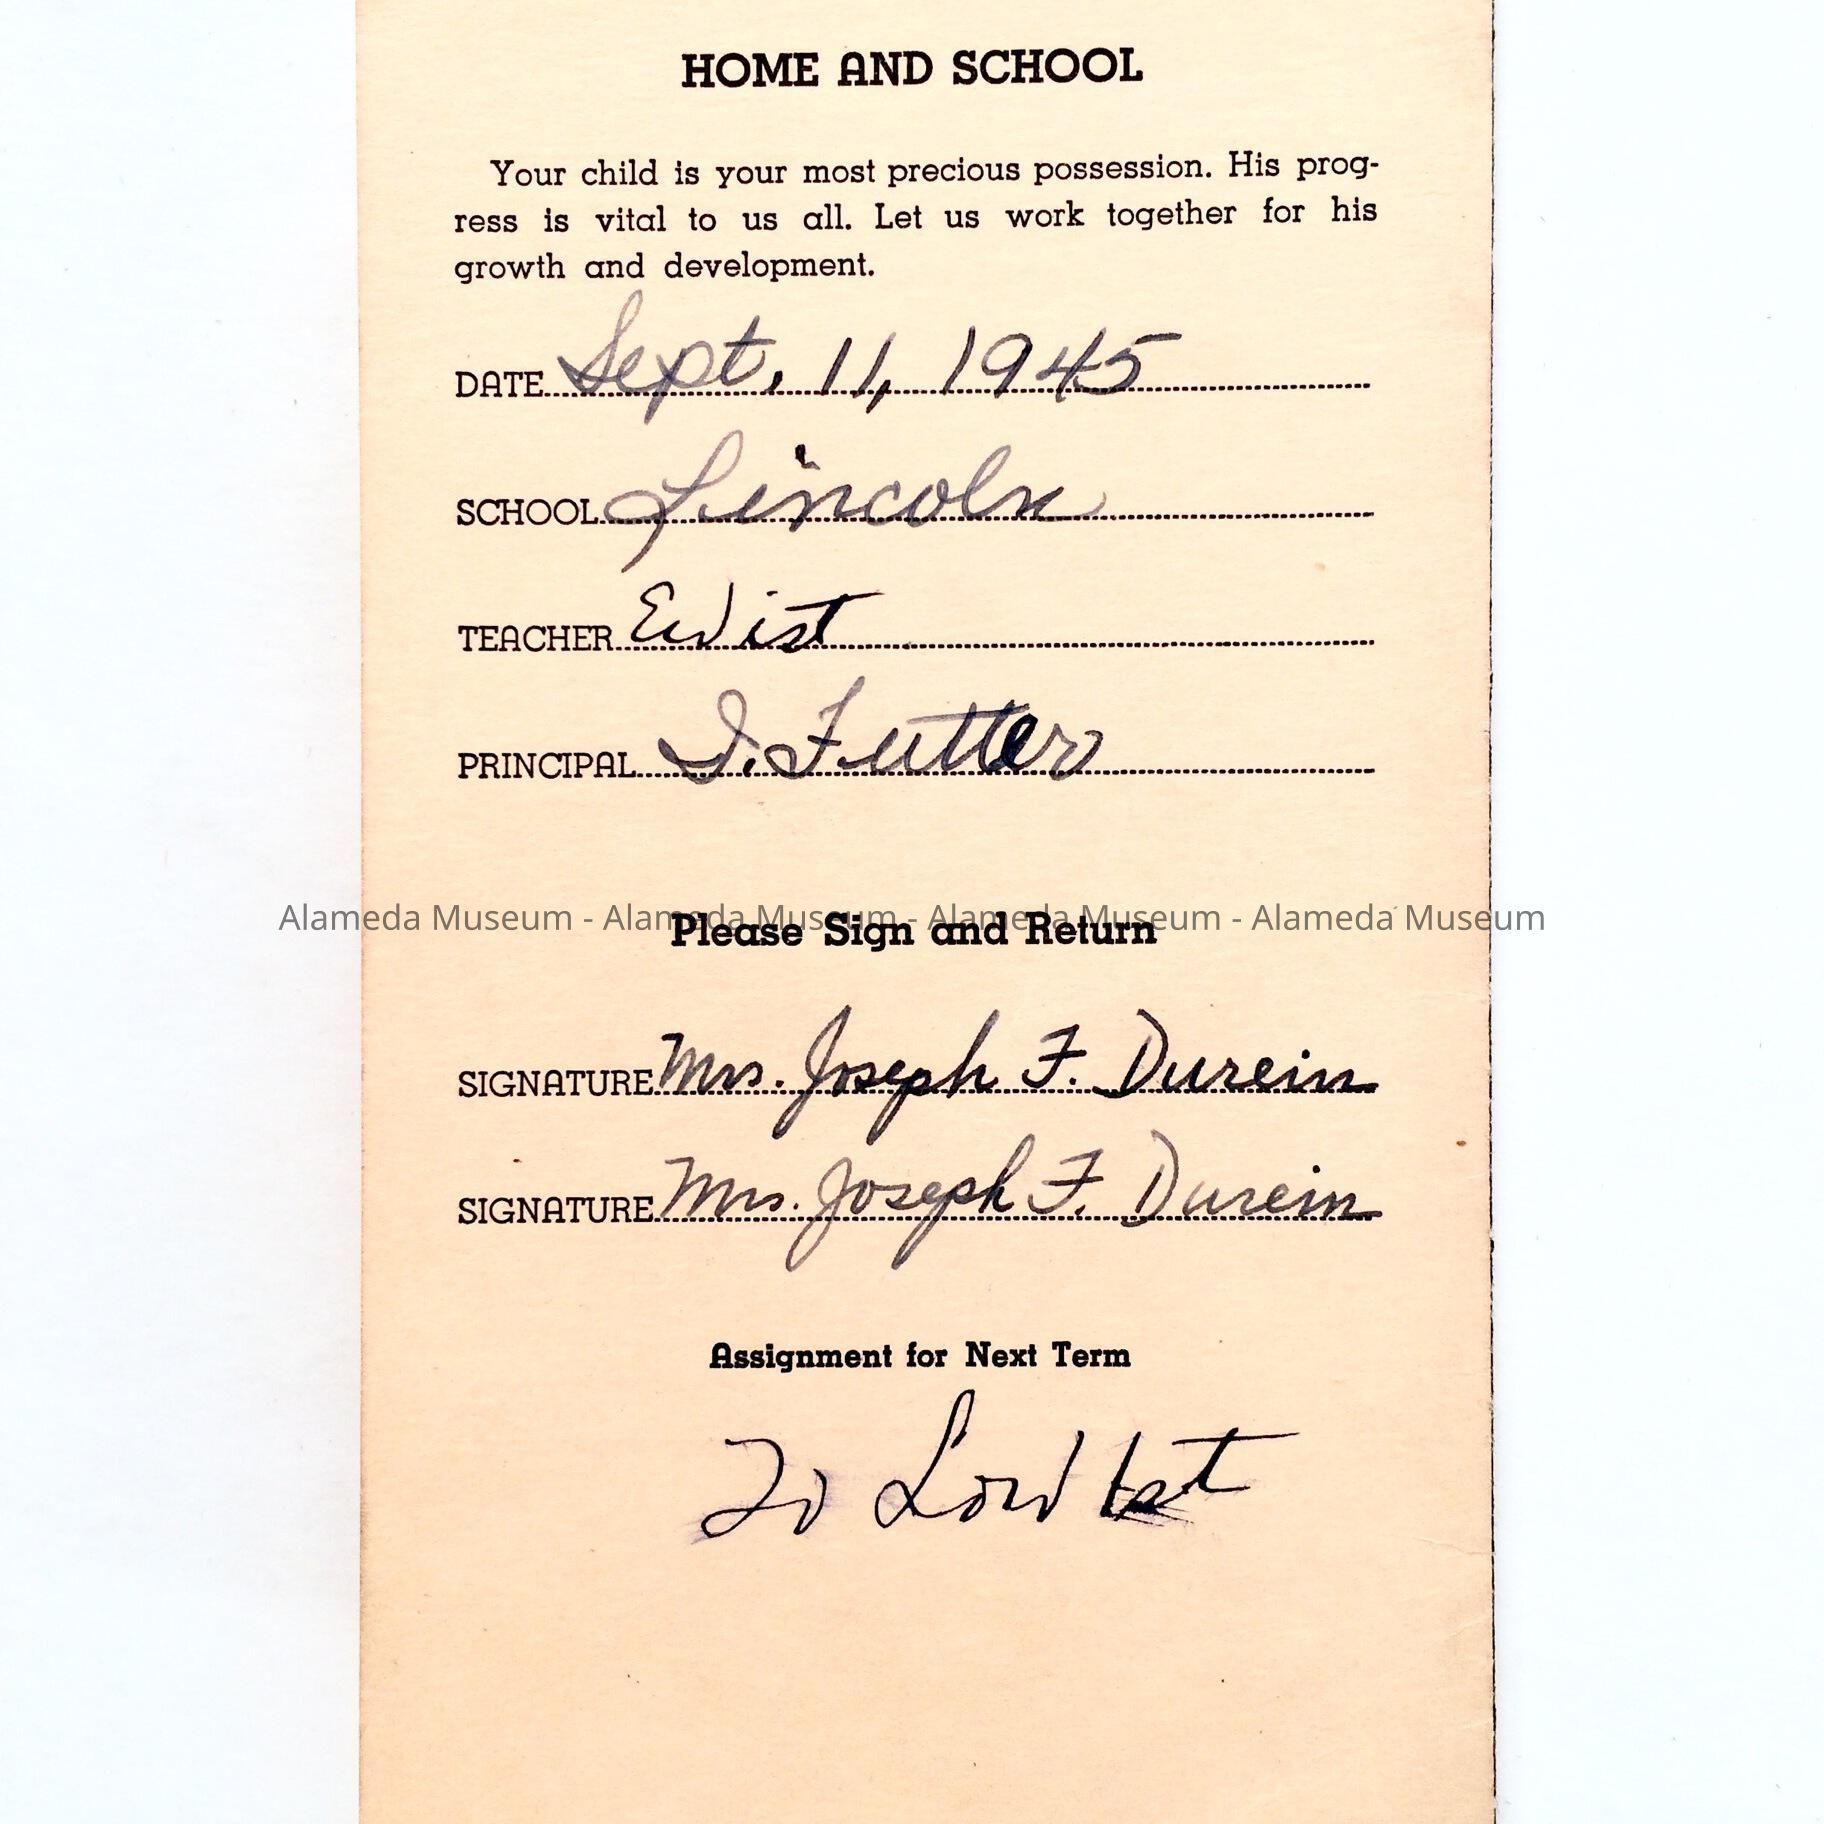 HOME AND SCHOOL
Your child is your most precious possession. His prog-
ress is vital to us all. Let us work together for his
growth and development.
DATE Sept. 11, 1945
SCHOOL Lincoln
TEACHER E Wist
PRINCIPAL I. Futter
Alameda Museum - Alameda Museum - Alameda Museum - Alameda Museum
Please Sign and Return
SIGNATURE Mrs. Joseph F. Durein
SIGNATURE Mrs. Joseph F. Durein
Assignment for Next Term
To Low 1st